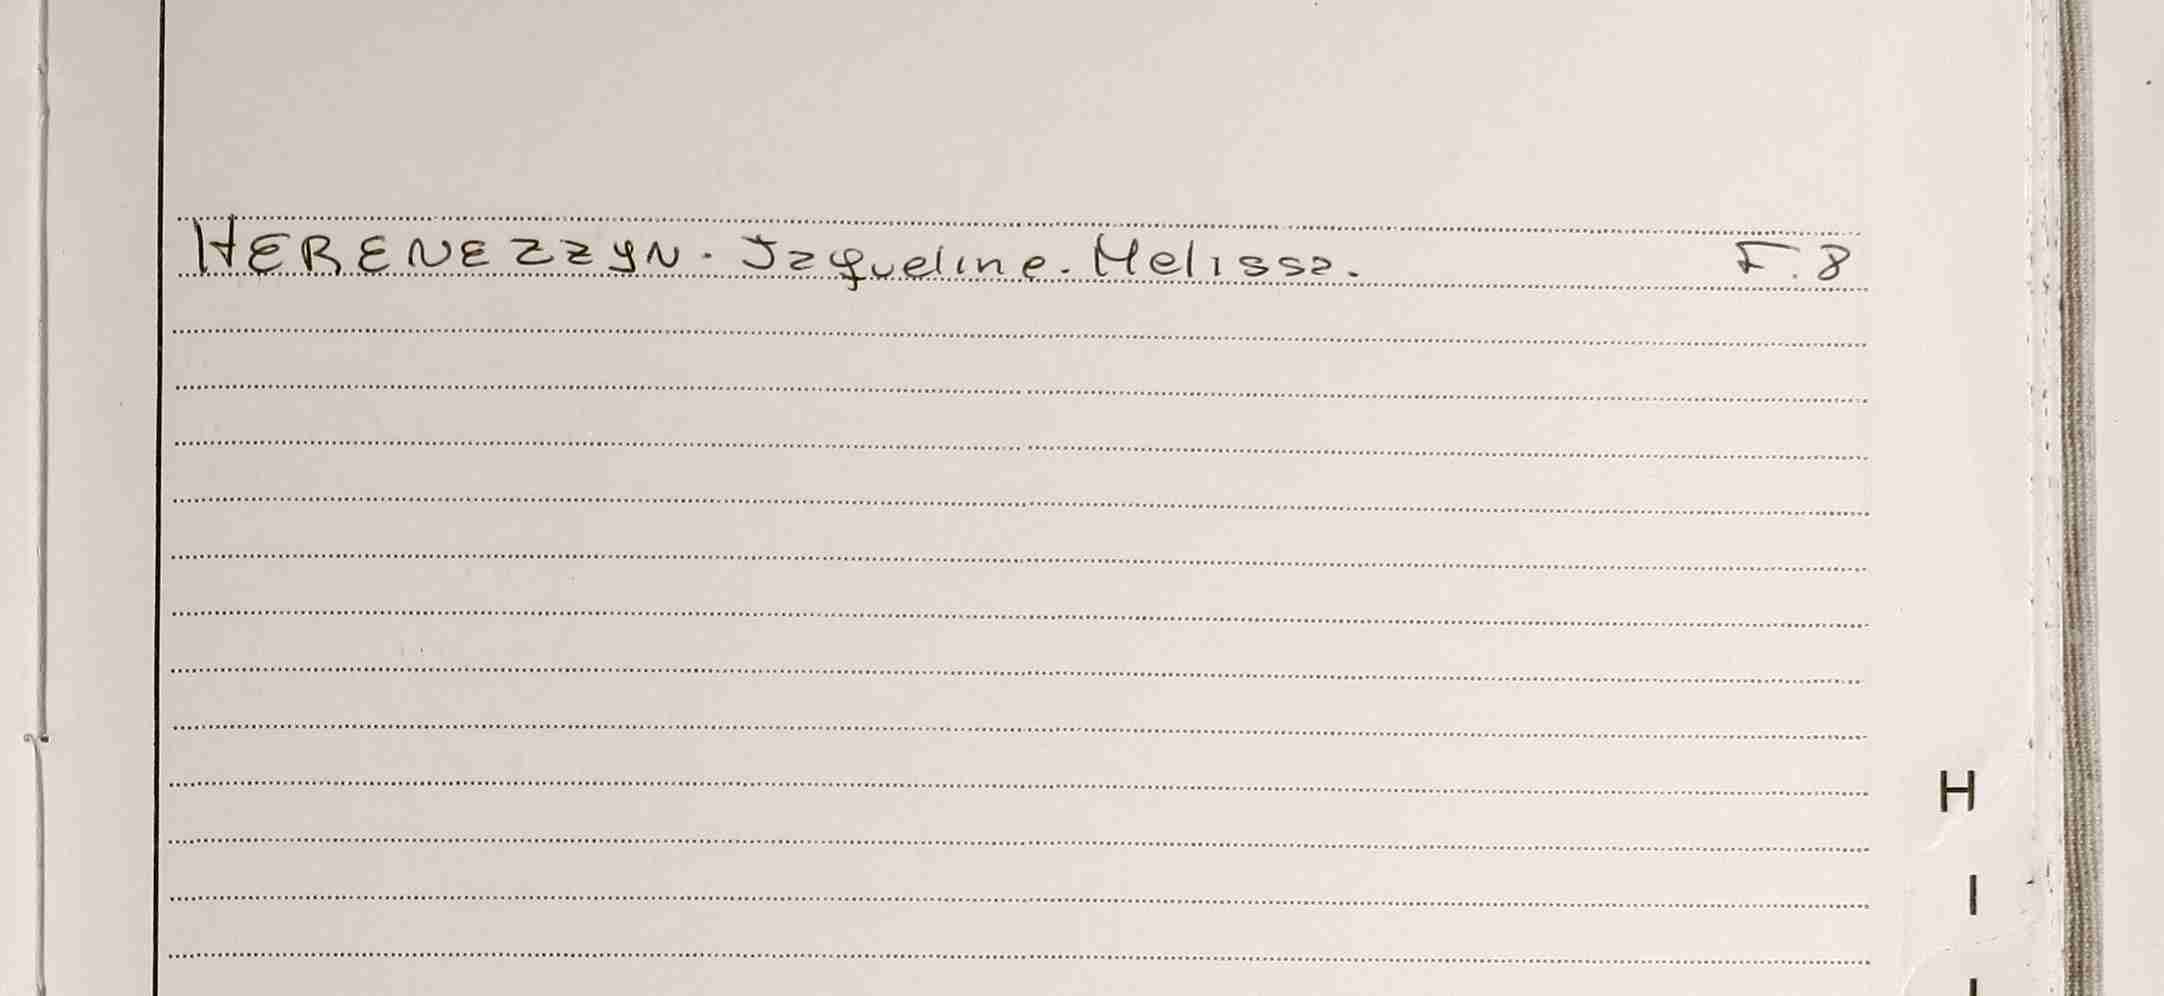 HERENEZZYN. Jaqueline. Melissa. F.8
H
I